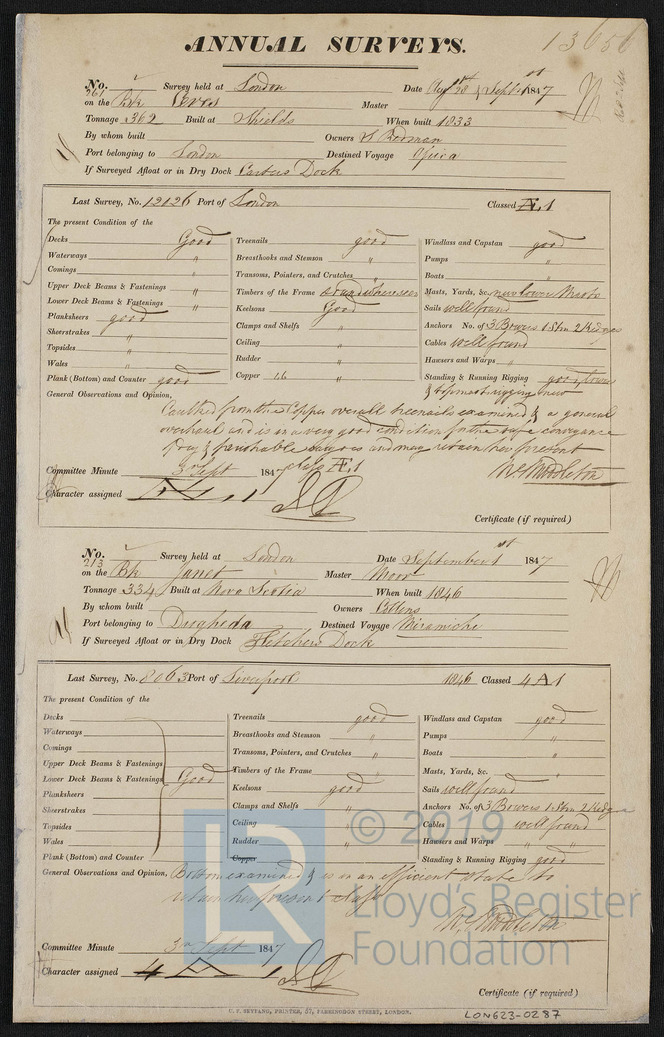 ANNUAL SURVEYS.
13656
No. 261 Survey held at London Date Aug 28 & Sept 1st 1847
on the Bk Master
Tonnage 362 Built at Shields When built 1833
By whom built Owners S Redman
Port belonging to London Destined Voyage
If Surveyed Afloat or in Dry Dock Dock
Last Survey, No. 12126 Port of London Classed Æ 1
The present Condition of the
Decks Good Treenails good Windlass and Capstan good
Waterways " Breasthooks and Stemson " Pumps "
Comings " Transoms, Pointers, and Crutches " Boats "
Upper Deck Beams & Fastenings " Timbers of the Frame sound where seen Masts, Yards, &c. new lower Masts
Lower Deck Beams & Fastenings " Keelsons Good Sails well found
Planksheers good Clamps and Shelfs " Anchors No. of 3 Bowers 1 Strm 2 Kedges
Sheerstrakes Ceiling " Cables well found
Topsides " Rudder " Hawsers and Warps "
Wales " Copper " Standing & Running Rigging good
Plank (Bottom) and Counter good & topmast rigging new
General Observations and Opinion, Caulked from the Copper overall treenails examined & a general
overhaul and is in a very good condition for the safe conveyance
Dry & perishable cargoes and may retain her present
class Æ 1
Committee Minute 3rd Sept 1847 Wm Middleton
Character assigned Æ 1
Certificate (if required)
No. 213 Survey held at London Date September 1st 1847
on the Bk Janet Master Moor
Tonnage 334 Built at Nova Scotia When built 1846
By whom built Owners
Port belonging to Drogheda Destined Voyage Miramichi
If Surveyed Afloat or in Dry Dock Fletchers Dock
Last Survey, No. 8063 Port of Liverpool 1846 Classed 4 A 1
The present Condition of the
Decks Treenails good Windlass and Capstan good
Waterways Breasthooks and Stemson " Pumps "
Comings Transoms, Pointers, and Crutches " Boats "
Upper Deck Beams & Fastenings Timbers of the Frame Masts, Yards, &c. "
Lower Deck Beams & Fastenings Good Keelsons good Sails well found
Planksheers Clamps and Shelfs " Anchors No. of 3 Bowers 1 Strm 2 Kedges
Sheerstrakes Ceiling " Cables well found
Topsides Rudder " Hawsers and Warps "
Wales Copper Standing & Running Rigging good
Plank (Bottom) and Counter
General Observations and Opinion, Bottom examined & is in an efficient state to
retain her present class
Wm Middleton
Committee Minute 3rd Sept 1847
Character assigned 4 A 1
Certificate (if required)
LON623-0287
© 2019
LR
Lloyd's Register
Foundation